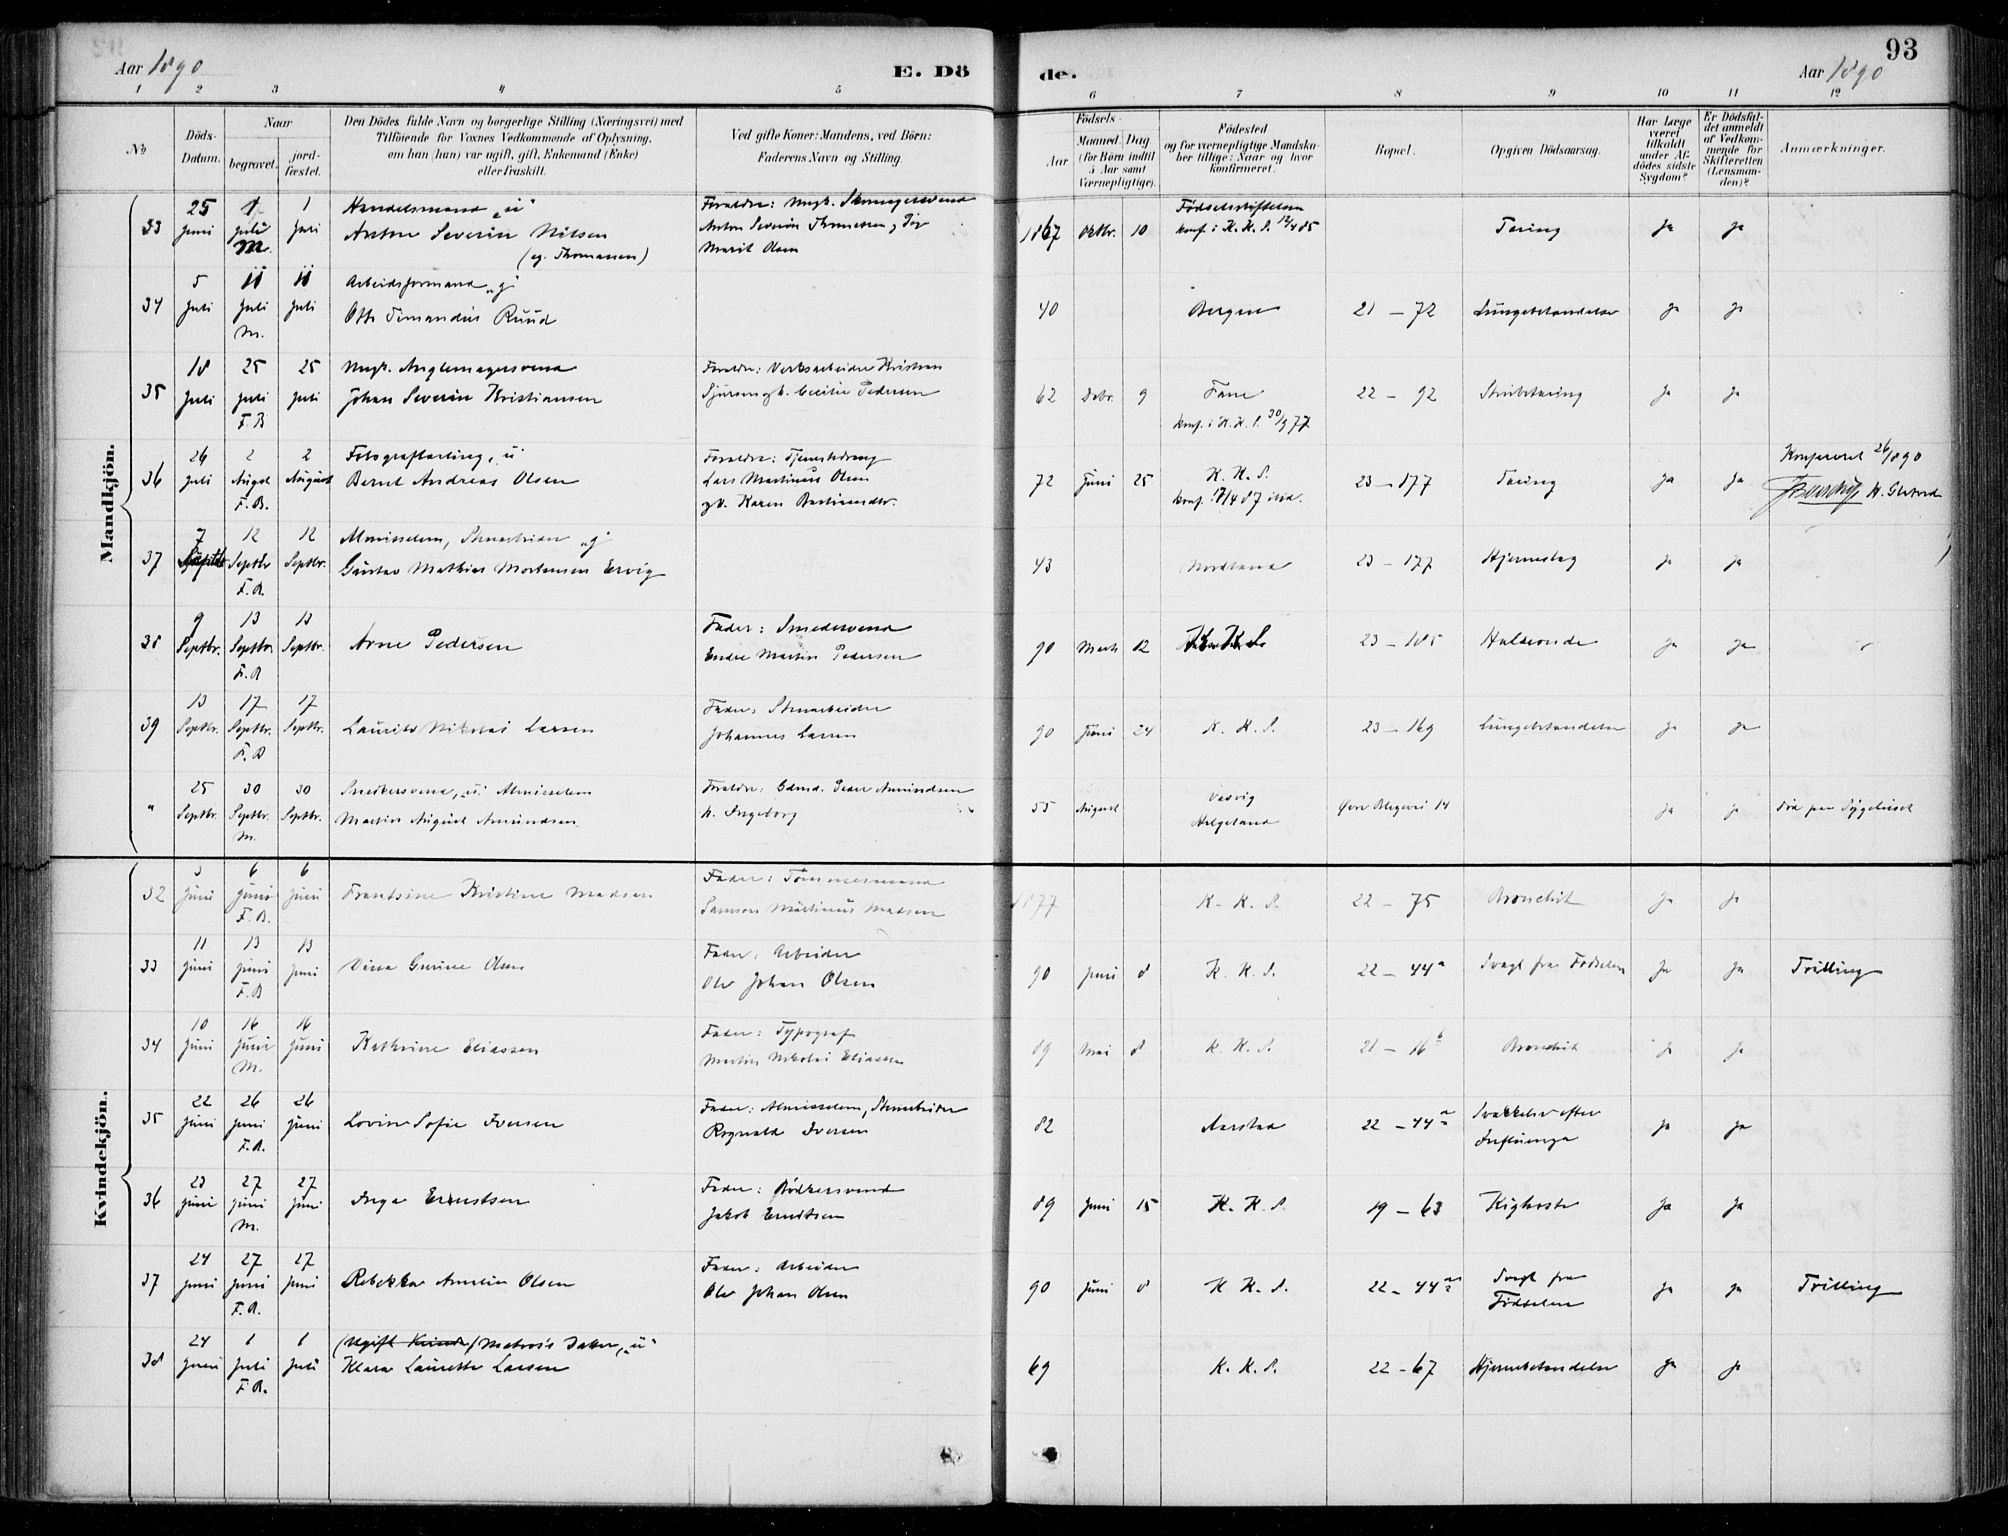 93
Aar 1890
E. Dö
de.
Aar 1890
1 2 3 4 5 6 7 8 9 10 11 12
No
Döds-Datum.
Naar
begravet.
jord-fæstet.
Den Dödes fulde Navn og borgerlige Stilling (Næringsvei) med
Tilföiende for Voxnes Vedkommende af Oplysning,
om hun (han) var ugift, gift, Enkemand (Enke)
eller fraskilt.
Ved gifte Koner: Mandens, ved Börn:
Faderens Navn og Stilling.
Födsels-
Aar
Maaned Dag
(for Börn indtil
5 Aar samt
Værnepligtige).
Födested
og for værnepligtige Mandska-
ber tillige: Naar og hvor
konfirmeret.
Bopæl.
Opgiven Dödsaarsag.
Har Læge
været
tilkaldt
under Af-
dödes sidste
Sygdom?
Er Dödsfal-
det anmeldt
af Vedkom-
mende for
Skifteretten
(Lensman-
den)?
Anmærkninger.
Mandkjön.
33 25 Juni 1 Juli M. 1 Juli
Handelsmand "u"
Anton Severin Nilsen
(eg. Thomassen)
Marit Olsen
1867 Oktbr. 10
Födselsstiftelsen
konf. i K. K. S. 12/4 85
Tæring ja ja
34 5 Juli 11 Juli M. 11 Juli
Arbeidsformand "g"
Otto Timandus Ruud
40 Bergen 21 – 72 Lungebetændelse ja ja
35 18 Juli 25 Juli F.B 25 Juli
Johan Severin Kristiansen
Forældre: Verksarbeider Kristian
62 Debr. 9 Fane
konf. i K. K. S. 30/9 77
22 – 92 Strubetæring ja ja
36 26 Juli 2 Augst F.B. 2 August
Fotograflærling, u
Bernt Andreas Olsen
Forældre: Tjenestedreng
Lars Martinus Olsen
og h. Karen Bastiansdtr.
72 Juni 25 K. K. S.
23 – 177 Tæring ja ja
Konfereret 26/8 90
37 7 12 Septbr F.B. 12 Septbr.
Almisselem, Stenarbeider "g"
Gustav Mathias Mortensen Ervig
43 Nordland 23 – 177 Hjerneslag ja ja
38 9 Septbr. 13 Septbr. F.B 13 Septbr.
Arne Pedersen
Fader: Smedesvend
Endre Martin Pedersen
90 Marts 12 K. K. S. 23 – 185 Halsonde ja ja
39 13 Septbr. 17 Septbr. F.B 17 Septbr.
Laurits Nikolai Larsen
Fader: Stenarbeider
Johannes Larsen
90 Juni 24 K. K. S. 23 – 169 Lungebetændelse ja ja
" 25 Septbr. 30 Septbr. M. 30 Septbr.
Snedkersvend, "u" Almisselem
Martin August Amundsen
Forældre: Gdmd. Peder Amundsen
h. Ingeborg
55 August
Helgeland
ja ja Död paa Sygehuset
Kvindekjön.
32 3 Juni 6 Juni F.B. 6 Juni
Frantsine Kristine Madsen
Fader: Tömmermand
Samson Martinus Madsen
1877 K. K. S. 22 – 75 Bronchit ja ja
33 11 Juni 13 Juni F.B 13 Juni
Gurine Olsen
Fader: Arbeider
Olv Johan Olsen
90 Juni 8 K. K. S. 22 – 44 a Svagt fra Födselen ja ja Trilling
34 10 Juni 16 Juni M. 16 Juni
Kathrine Eliassen
Fader: Typograf
Martin Nikolai Eliassen
89 Mai 8 K. K. S. 21 – 16 b Bronchit ja ja
35 22 Juni 26 Juni F.B. 26 Juni
Lovise Sofie Iversen
Fader: Almisselem, Stenarbeider
Rognald Iversen
82 Aarstad 22 – 44 a
Svækkelse efter
Influenza
ja ja
36 23 Juni 27 Juni M. 27 Juni
Inga Erntsen
Fader: Bödkersvend
Jakob Erntsen
89 Juni 15 K. K. S. 19 – 63 Kighoste ja ja
37 24 Juni 27 Juni F.B. 27 Juni
Rebekka Amalie Olsen
Fader: Arbeider
Olv Johan Olsen
90 Juni 8 K. K. S. 22 – 44 a
Svagt fra
Födselen
ja ja Trilling
38 24 Juni 1 Juli F.B. 1 Juli
(Ugift Kvinde) Matros's Datter, "u"
Klara Laurette Larsen
69 K. K. S. 22 – 67 Hjernebetændelse ja ja